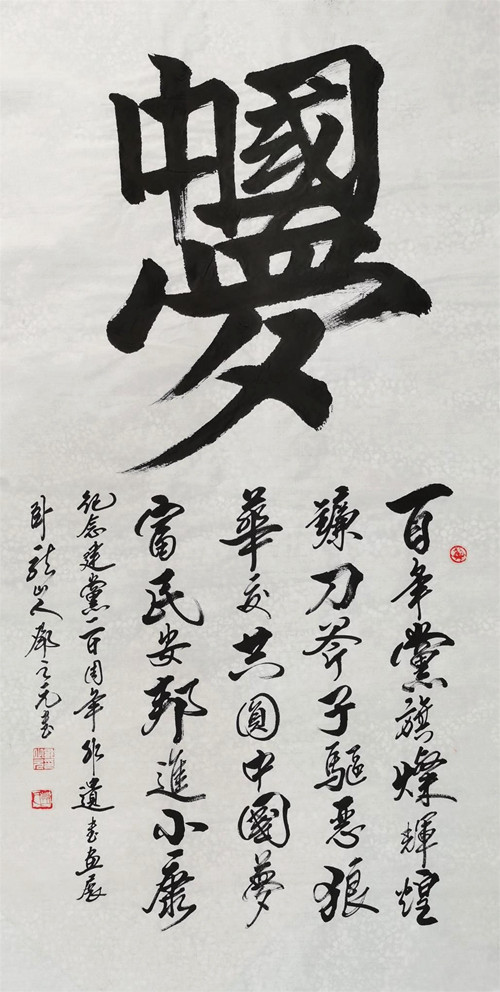 中國夢
百年黨旗燦輝煌
鐮刀斧子驅惡狼
華夏共圓中國夢
富民安邦進小康
紀念建黨一百周年非遺書畫展
卧龍山人之元書